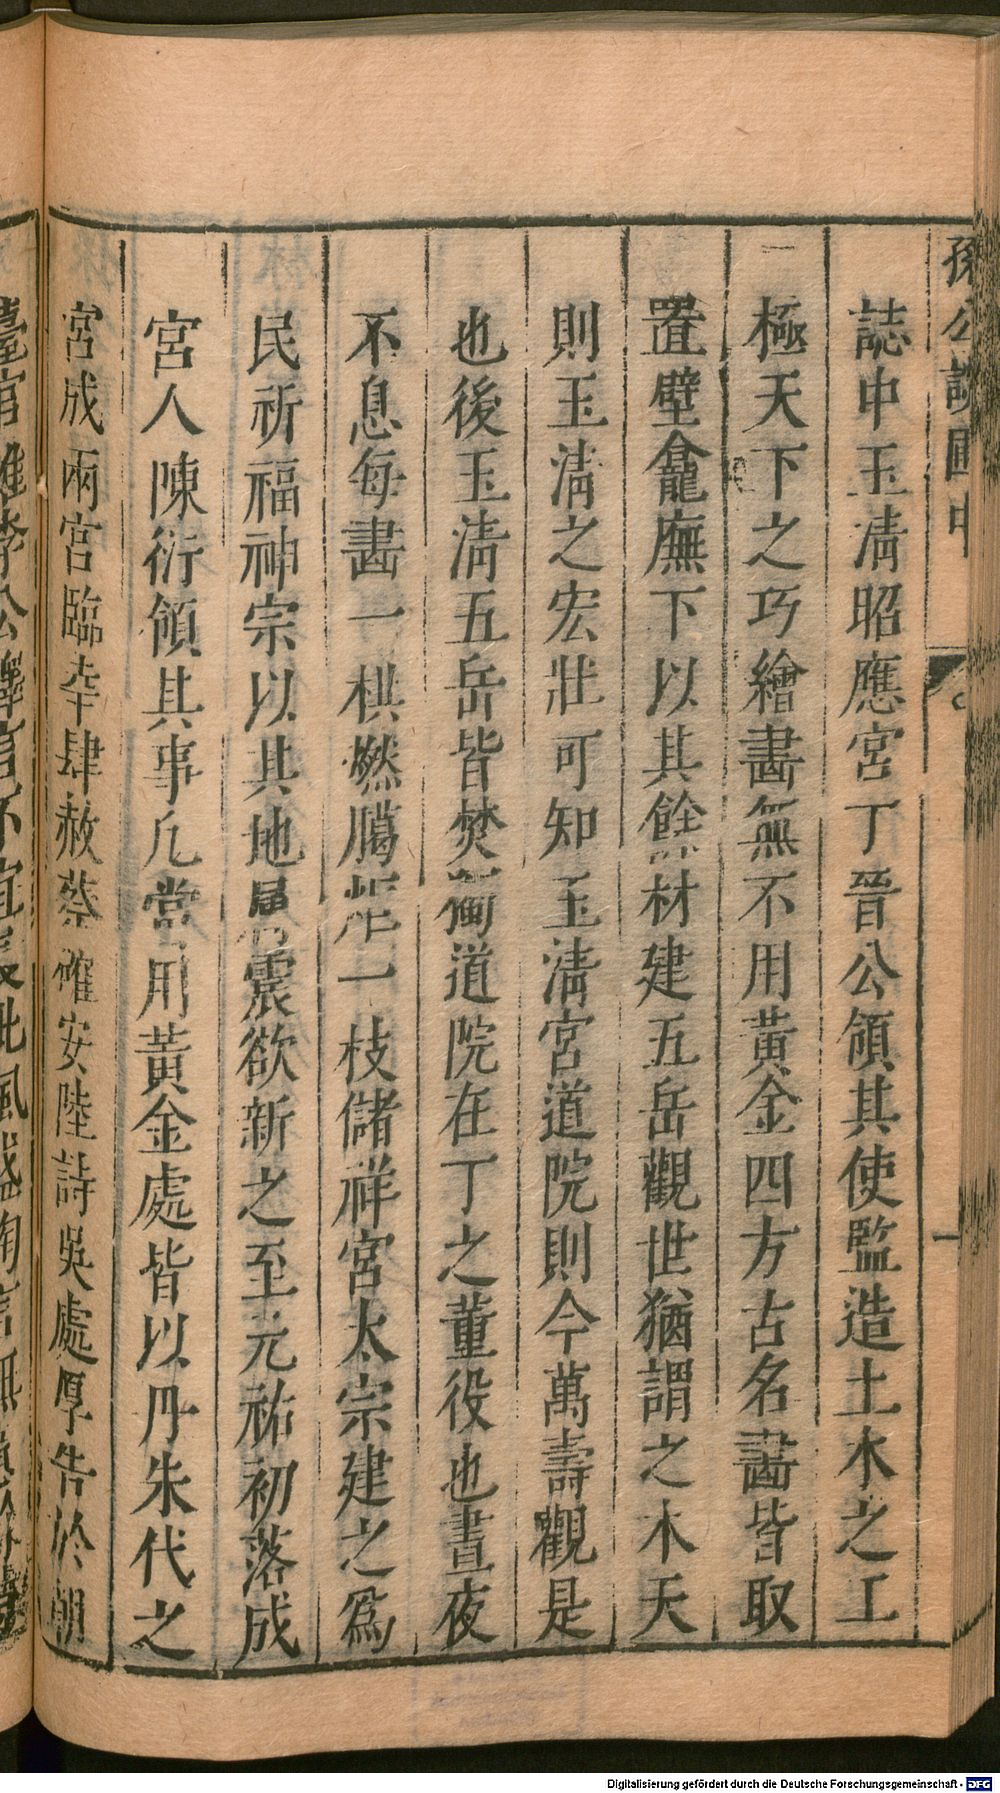 孫公談圃中
誌中玉淸昭應宮丁晉公領其使監造土木之工
極天下之巧繪畵無不用黃金四方古名畵皆取
置壁龕廡下以其餘材建五岳觀世猶謂之木天
則玉淸之宏壯可知玉淸宮道院則今萬壽觀是
也後玉淸五岳皆焚獨道院在丁之董役也晝夜
不息每畵一栱燃臈炬一枝儲祥宮太宗建之爲
民祈福神宗以其地屬震欲新之至元祐初落成
宮人陳衍領其事凡當用黃金處皆以丹朱代之
宮成兩宮臨幸肆赦蔡確安陸詩吳處厚告於朝
Digitalisierung gefördert durch die Deutsche Forschungsgemeinschaft - DFG